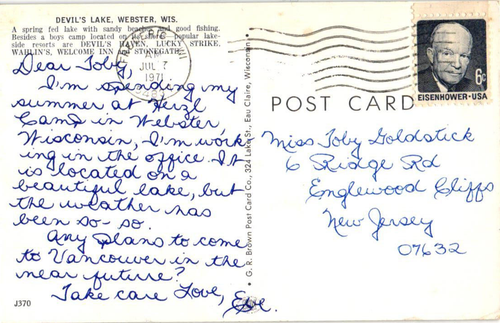 DEVIL'S LAKE, WEBSTER, WIS.
A spring fed lake with sandy good fishing.
Besides a boys camp located on popular lake-
side resorts are DEVIL'S HAVEN, LUCKY STRIKE,
WAHLIN'S, WELCOME INN AND STONEGATE.
JUL 7
1971
Dear Toby,
I'm spending my
summer at Herzl
Camp in Webster
Wisconsin, I'm work
ing in the office. It
is located on a
beautiful lake, but
the weather has
been so-so.
Any plans to come
to Vancouver in the
near future?
Take care Love, Eve.
J370
G. R. Brown Post Card Co., 324 Lake St., Eau Claire, Wisconsin
POST CARD
6¢
EISENHOWER·USA
Miss Toby Goldstick
6 Ridge Rd
Englewood Cliffs
New Jersey
07632